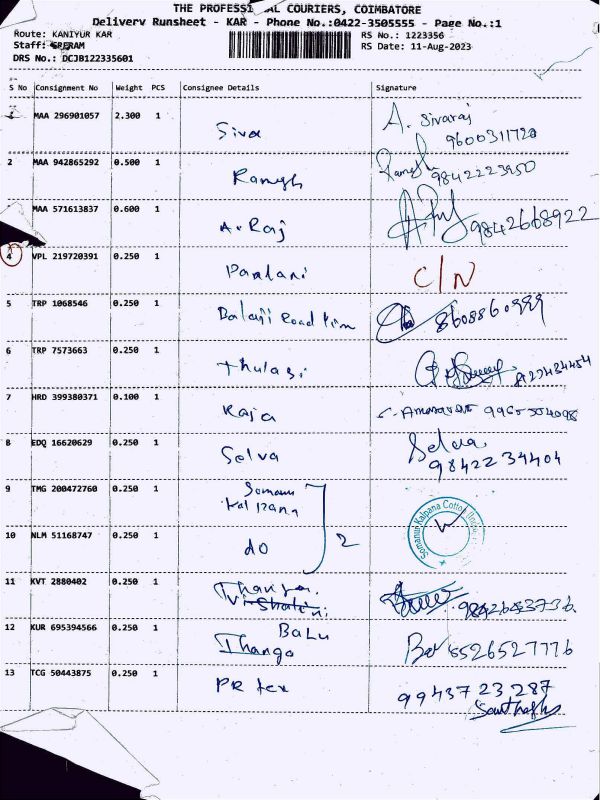 THE PROFESSI AL COURIERS, COIMBATORE
Delivery Runsheet - KAR - Phone No.:0422-3505555 - Page No.:1
Route: KANIYUR KAR RS No.: 1223356
Staff: SRERAM RS Date: 11-Aug-2023
DRS No.: DCJB122335601
S No Consignment No Weight PCS Consignee Details Signature
MAA 296901057 2.300 1 Siva A. Sivaraj
9600311720
2 MAA 942865292 0.500 1 Ramesh Ramesh 9842223950
MAA 571613837 0.600 1 A. Raj 9842668922
4 VPL 219720391 0.250 1 C/N
5 TRP 1068546 0.250 1 Balaji 8608860999
6 TRP 7573663 0.250 1 Thulasi
7 HRD 399380371 0.100 1 Raja
8 EDQ 16620629 0.250 1 Selva Selva
9842234404
9 TMG 200472760 0.250 1 Somanur
Kalpana
Somanur Kalpana Cotton
10 NLM 51168747 0.250 1 do 2
11 KVT 2880402 0.250 1
12 KUR 695394566 0.250 1 Balu
Thango 8526527776
13 TCG 50443875 0.250 1 PR tex 9943723287
Santhosh